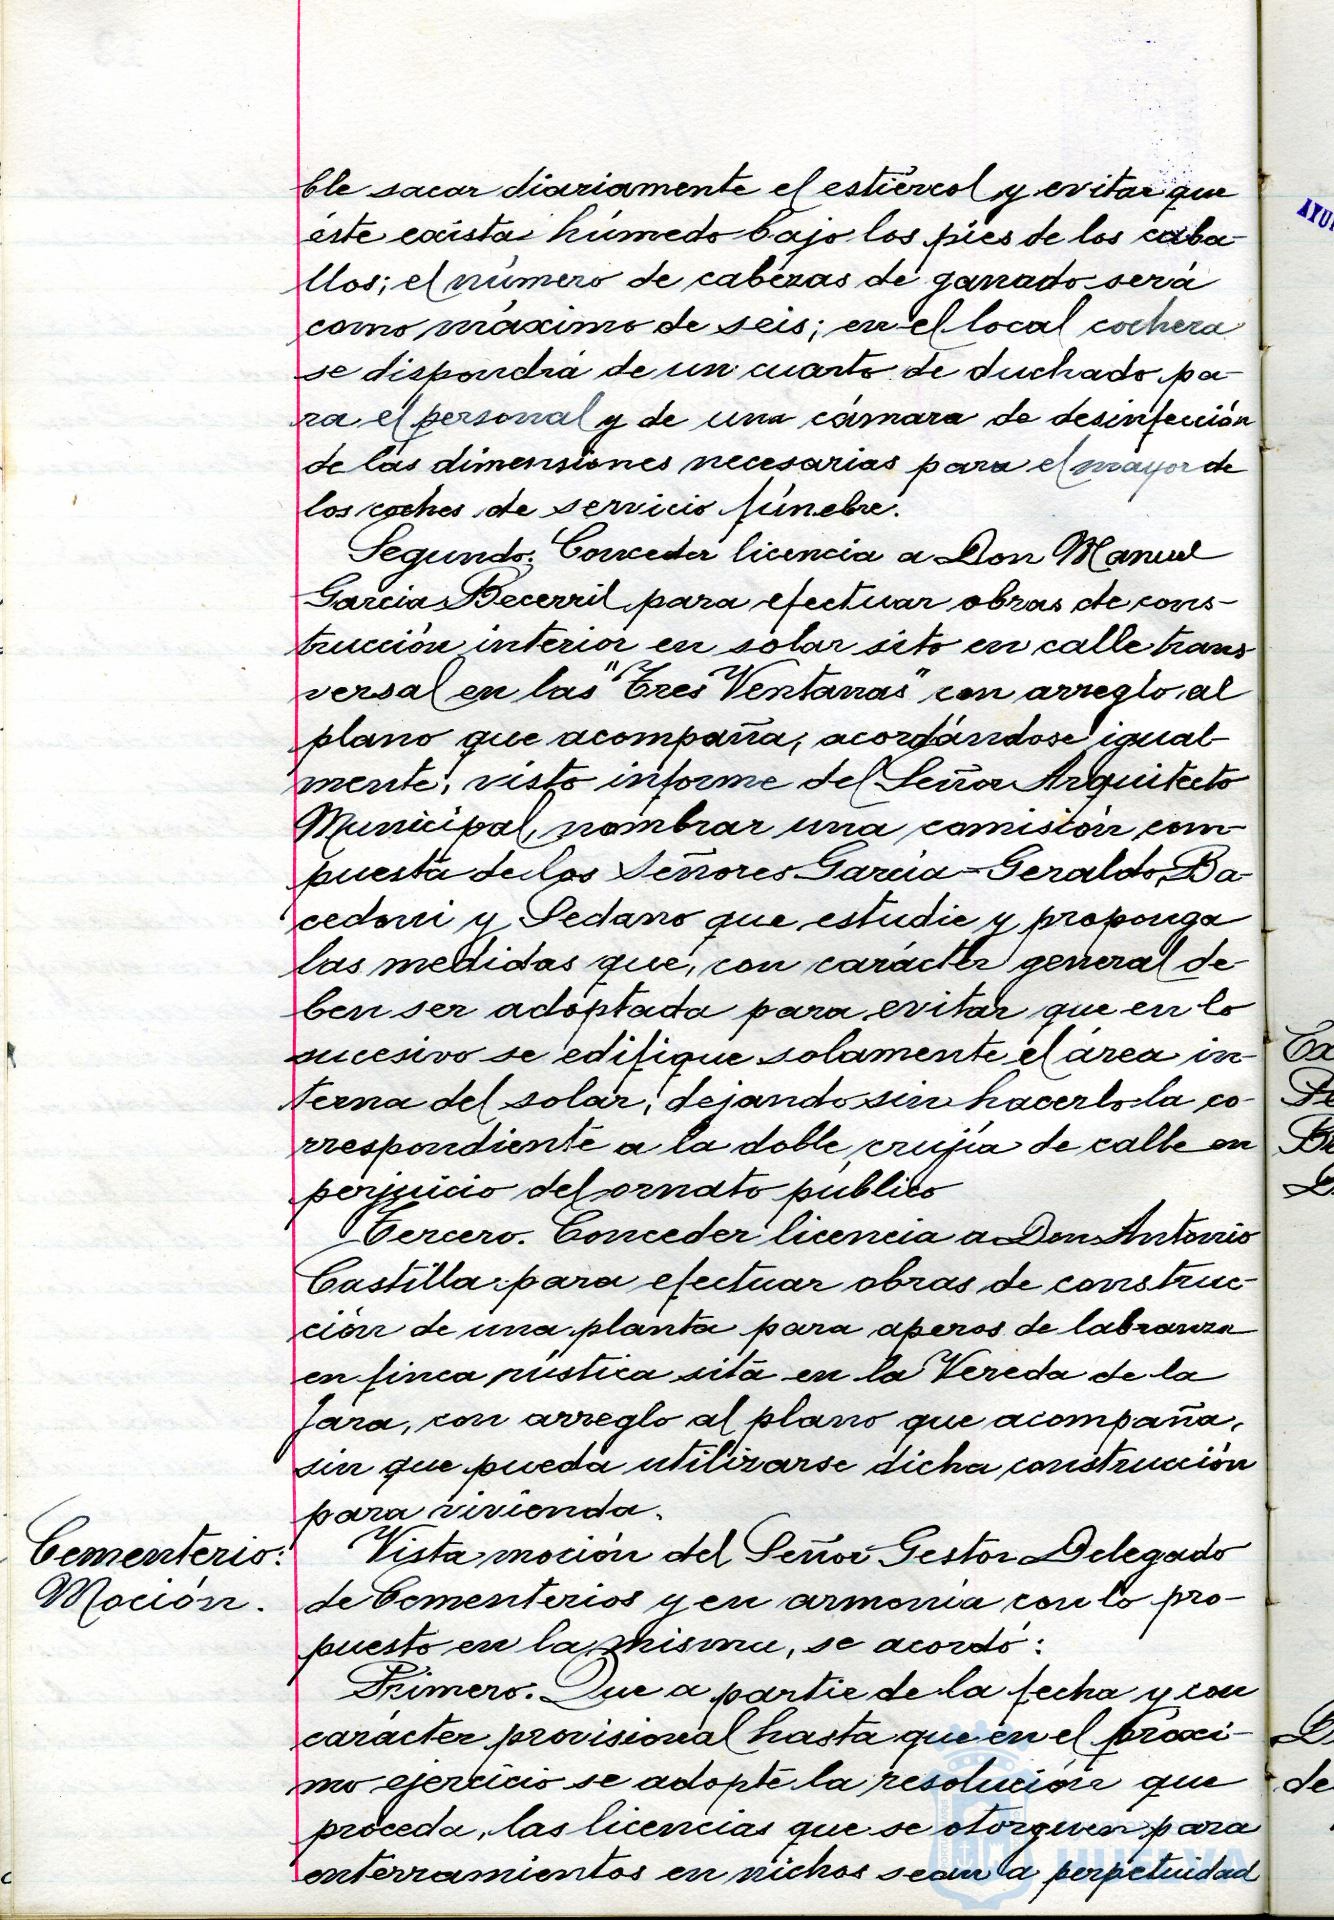 ble sacar diariamente el estiércol y evitar que
éste exista húmedo bajo los pies de los caba-
llos; el número de cabezas de ganado será
como máximo de seis; en el local cochera
se dispondrá de un cuarto de duchado pa-
ra el personal y de una cámara de desinfección
de las dimensiones necesarias para el mayor de
los coches de servicio fúnebre.
Segundo. Conceder licencia a Don Manuel
García Becerril para efectuar obras de cons-
trucción interior en solar sito en calle trans
versal en las "Tres Ventanas" con arreglo al
plano que acompaña, acordándose igual-
mente, visto informe del Señor Arquitecto
Municipal, nombrar una comisión com-
puesta de los Señores García-Geraldo, Ba-
cedoni y Sedano que estudie y proponga
las medidas que, con carácter general de-
ben ser adoptada para evitar que en lo
sucesivo se edifique solamente el área in-
terna del solar, dejando sin hacerlo la co-
rrespondiente a la doble crujía de calle en
perjuicio del ornato público
Tercero. Conceder licencia a Don Antonio
Castilla para efectuar obras de construc-
ción de una planta para aperos de labranza
en finca rústica sita en la Vereda de la
Jara, con arreglo al plano que acompaña,
sin que pueda utilizarse dicha construcción
para vivienda.
Cementerio:
Moción.
Vista moción del Señor Gestor Delegado
de Cementerios y en armonía con lo pro-
puesto en la misma, se acordó:
Primero. Que a partir de la fecha y con
carácter provisional hasta que en el próxi-
mo ejercicio se adopte la resolución que
proceda, las licencias que se otorguen para
enterramientos en nichos sean a perpetuidad
HUELVA